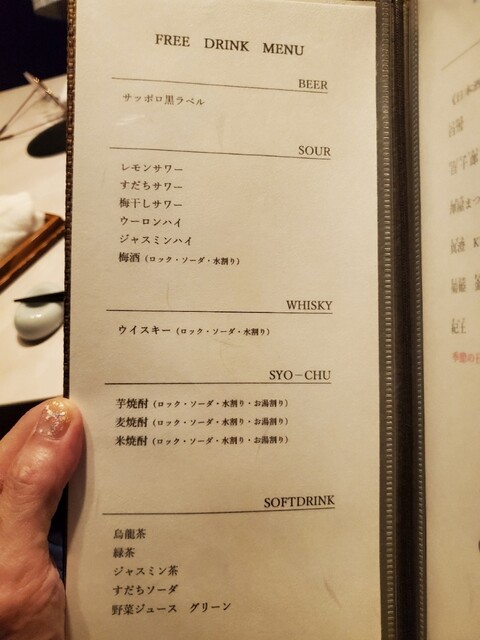 FREE DRINK MENU
BEER
サッポロ黒ラベル
SOUR
レモンサワー
すだちサワー
梅干しサワー
ウーロンハイ
ジャスミンハイ
梅酒（ロック・ソーダ・水割り）
WHISKY
ウイスキー（ロック・ソーダ・水割り）
SYO－CHU
芋焼酎（ロック・ソーダ・水割り・お湯割り）
麦焼酎（ロック・ソーダ・水割り・お湯割り）
米焼酎（ロック・ソーダ・水割り・お湯割り）
SOFTDRINK
烏龍茶
緑茶
ジャスミン茶
すだちソーダ
野菜ジュース　グリーン